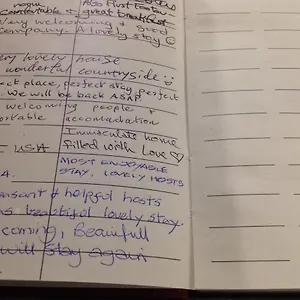 Also First Eats
Comfortable & great breakfast
Very welcoming & good
Company. A lovely stay ☺
Very lovely house
wonderful countryside
ct place, perfect stay, perfect
We will be back ASAP
welcoming people &
rtable accomodation
Immaculate home
- USA filled with Love ♡
4. MOST ENJOYABLE
STAY, LOVELY HOSTS
asant & helpful hosts
beautiful lovely stay
coming, Beautifull
will stay again